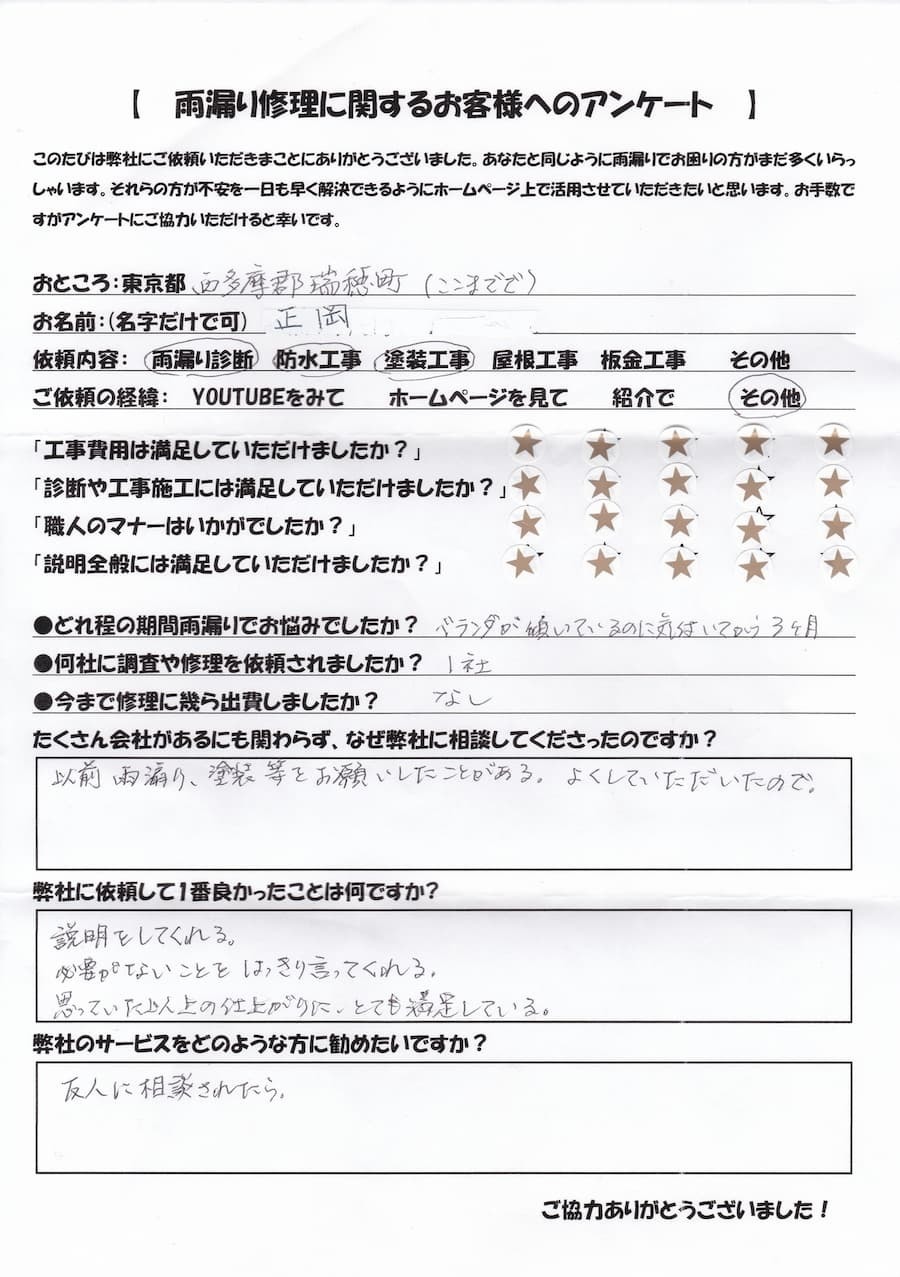 【 雨漏り修理に関するお客様へのアンケート 】
このたびは弊社にご依頼いただきまことにありがとうございました。あなたと同じように雨漏りでお困りの方がまだ多くいらっ
しゃいます。それらの方が不安を一日も早く解決できるようにホームページ上で活用させていただきたいと思います。お手数で
すがアンケートにご協力いただけると幸いです。
おところ：東京都 西多摩郡瑞穂町（ここまでで）
お名前：（名字だけで可） 正岡
依頼内容： 雨漏り診断 防水工事 塗装工事 屋根工事 板金工事 その他
ご依頼の経緯： YOUTUBEをみて ホームページを見て 紹介で その他
「工事費用は満足していただけましたか？」
「診断や工事施工には満足していただけましたか？」
「職人のマナーはいかがでしたか？」
「説明全般には満足していただけましたか？」
●どれ程の期間雨漏りでお悩みでしたか？ ベランダが傾いているのに気付いてから3ヶ月
●何社に調査や修理を依頼されましたか？ 1社
●今まで修理に幾ら出費しましたか？ なし
たくさん会社があるにも関わらず、なぜ弊社に相談してくださったのですか？
以前雨漏り、塗装等をお願いしたことがある。よくしていただいたので。
弊社に依頼して1番良かったことは何ですか？
説明をしてくれる。
必要がないことをはっきり言ってくれる。
思っていた以上の仕上がりに、とても満足している。
弊社のサービスをどのような方に勧めたいですか？
友人に相談されたら。
ご協力ありがとうございました！